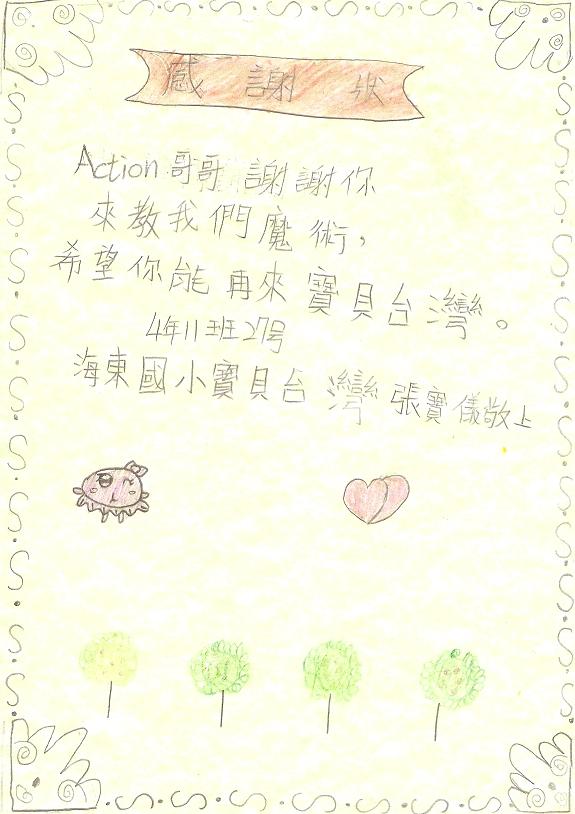 感謝狀
Action哥哥 謝謝你
來教我們魔術，
希望你能再來寶貝台灣。
4年11班27號
海東國小寶貝台灣 張寶儀敬上